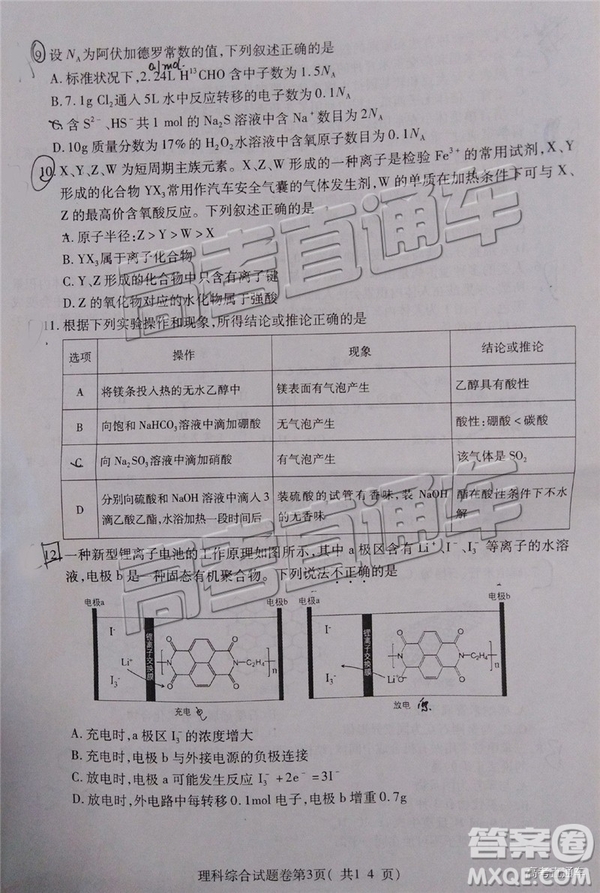 9 设 NA为阿伏加德罗常数的值,下列叙述正确的是
A.标准状况下,2.24L H¹³CHO 含中子数为 1.5NA
B.7.1g Cl₂通入 5L 水中反应转移的电子数为 0.1NA
C.含 S²⁻、HS⁻共 1 mol 的 Na₂S 溶液中含 Na⁺数目为 2NA
D.10g 质量分数为 17%的 H₂O₂水溶液中含氧原子数目为 0.1NA
10.X、Y、Z、W 为短周期主族元素。X、Z 形成的一种离子是检验 Fe³⁺的常用试剂,X、Y
形成的化合物 YX₃常用作汽车安全气囊的气体发生剂,W 的单质在加热条件下可与 X、
Z 的最高价含氧酸反应。下列叙述正确的是
A.原子半径:Z>Y>W>X
B.YX₃属于离子化合物
C.Y、Z 形成的化合物中只含有离子键
D.Z 的氧化物对应的水化物属于强酸
11.根据下列实验操作和现象,所得结论或推论正确的是
选项 操作 现象 结论或推论
A 将镁条投入热的无水乙醇中 镁表面有气泡产生 乙醇具有酸性
B 向饱和 NaHCO₃溶液中滴加硼酸 无气泡产生 酸性:硼酸<碳酸
C 向 Na₂SO₃溶液中滴加硝酸 有气泡产生 该气体是 SO₂
D 分别向硫酸和 NaOH 溶液中滴入 3 滴乙酸乙酯,水浴加热一段时间后 装硫酸的试管有香味,装 NaOH 的无香味 酯在酸性条件下不水解
12.一种新型锂离子电池的工作原理如图所示,其中 a 极区含有 Li⁺、I⁻、I₃⁻ 等离子的水溶
液,电极 b 是一种固态有机聚合物。下列说法不正确的是
电极a 电极b 电极a 电极b
I⁻ Li⁺ I₃⁻ 锂离子交换膜 O O N N–C₂H₄ O O n
I⁻ Li⁺ I₃⁻ 锂离子交换膜 O O N N–C₂H₄ Li–O O n
充电 放电
A.充电时,a 极区 I₃⁻的浓度增大
B.充电时,电极 b 与外接电源的负极连接
C.放电时,电极 a 可能发生反应 I₃⁻+2e⁻=3I⁻
D.放电时,外电路中每转移 0.1mol 电子,电极 b 增重 0.7g
理科综合试题卷第3页( 共1 4 页)
高考直通车
高考直通车
答案圈
MXQE.COM